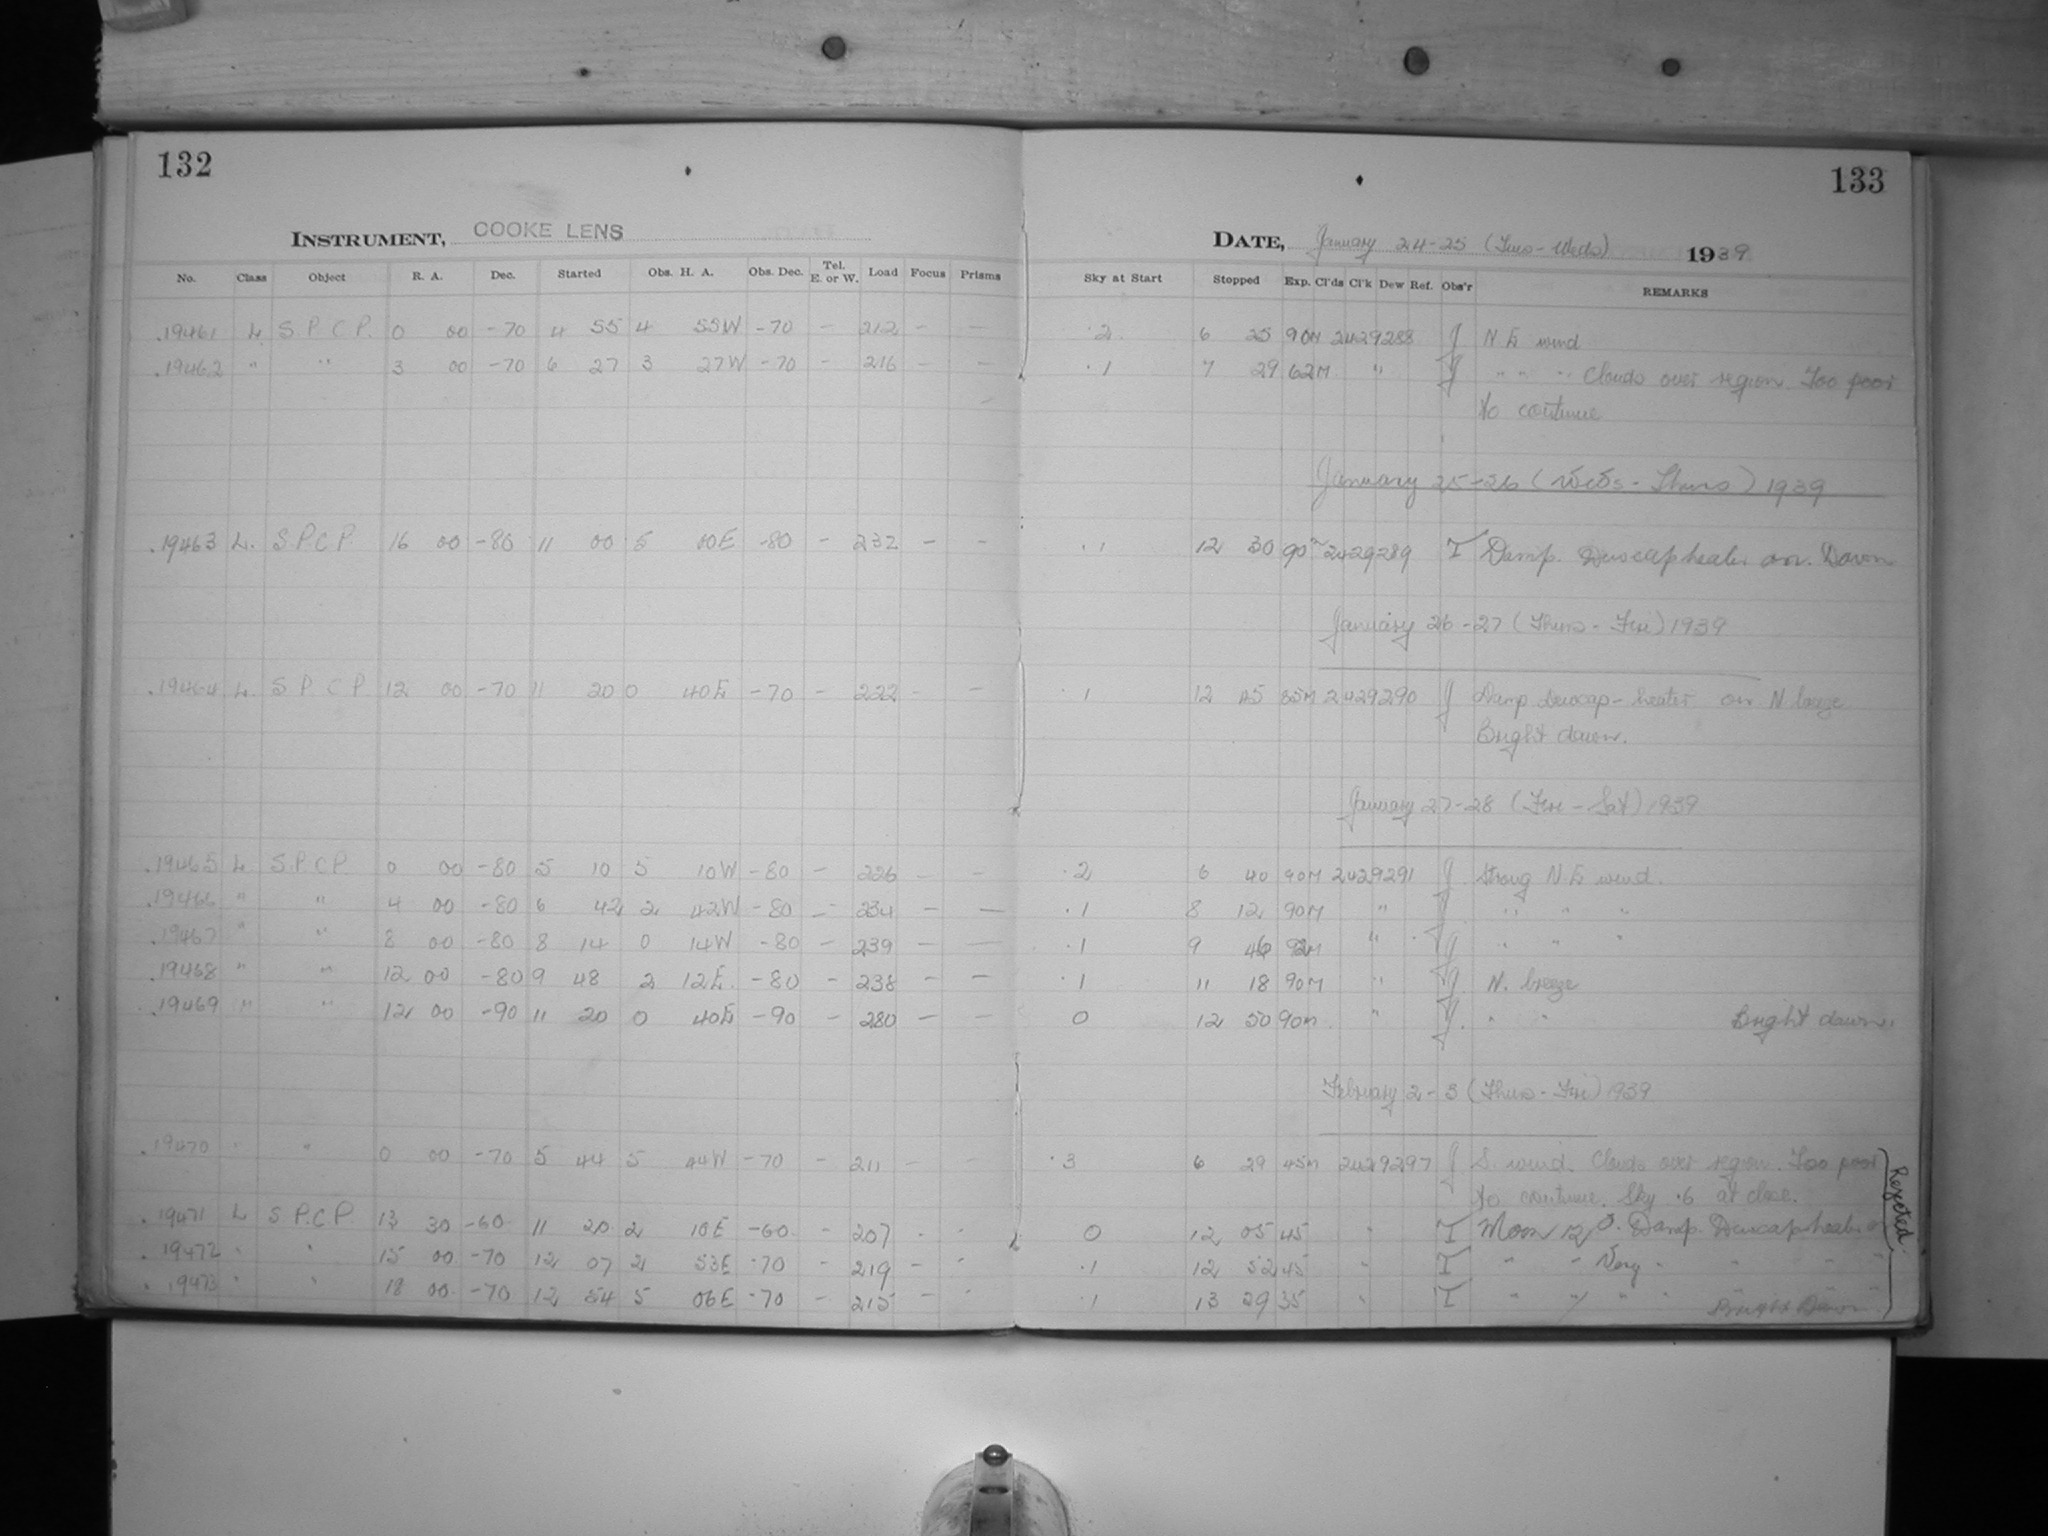 132
INSTRUMENT, COOKE LENS
No. Class Object R. A. Dec. Started Obs. H. A. Obs. Dec. Tel. E. or W. Load Focus Prisms
19461 L S.P.C.P. 0 00 -70 4 55 4 55W -70 - 212 - -
19462 " " 3 00 -70 6 27 3 27W -70 - 216 - -
19463 L. S.P.C.P. 16 00 -80 11 00 5 00E -80 - 232 - -
19464 L. S P C P. 12 00 -70 11 20 0 40E -70 - 222 - -
19465 L S.P.C.P. 0 00 -80 5 10 5 10W -80 - 226 - -
19466 " " 4 00 -80 6 42 2 42W -80 - 234 - -
19467 " " 8 00 -80 8 14 0 14W -80 - 239 - -
19468 " " 12 00 -80 9 48 2 12E. -80 - 238 - -
19469 " " 12 00 -90 11 20 0 40E -90 - 280 - -
19470 " " 0 00 -70 5 44 5 44W -70 - 211 - -
19471 L S.P.C.P. 13 30 -60 11 20 2 10E -60 - 207 - -
19472 " " 15 00 -70 12 07 2 53E -70 - 219 - -
19473 " " 18 00 -70 12 54 5 06E -70 - 215 - -
133
DATE, January 24-25 (Tues-Weds) 1939
Sky at Start Stopped Exp. Cl'ds Cl'k Dew Ref. Obs'r REMARKS
.2 6 25 90M 2429288 J N E wind
.1 7 29 62M " J " " " Clouds over region. Too poor
to continue
January 25-26 (Weds-Thurs) 1939
.1 12 30 90m 2429289 T Damp. Dewcap heater on. Dawn
January 26-27 (Thurs-Fri) 1939
.1 12 45 85M 2429290 J Damp Dewcap-heater on N breeze
Bright dawn.
January 27-28 (Fri-Sat) 1939
.2 6 40 90M 2429291 J Strong N E wind.
.1 8 12 90M " J " " "
.1 9 46 92M " J " " "
.1 11 18 90M " J N. breeze
0 12 50 90m " J. " " Bright dawn.
February 2-3 (Thurs-Fri) 1939
.3 6 29 45m 2429297 J S. wind. Clouds over region. Too poor
to continue. Sky .6 at close.
0 12 05 45 " T Moon 12 Damp. Dewcap heater on
.1 12 52 45 " T " " Very " " " "
.1 13 29 35 " T " " " "
Bright Dawn.
Rejected.